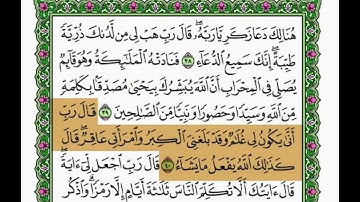 هُنَالِكَ دَعَا زَكَرِيَّا رَبَّهُۥ ۖ قَالَ رَبِّ هَبْ لِى مِن لَّدُنكَ ذُرِّيَّةً
طَيِّبَةً ۖ إِنَّكَ سَمِيعُ ٱلدُّعَآءِ ٣٨ فَنَادَتْهُ ٱلْمَلَٰٓئِكَةُ وَهُوَ قَآئِمٌ
يُصَلِّى فِى ٱلْمِحْرَابِ أَنَّ ٱللَّهَ يُبَشِّرُكَ بِيَحْيَىٰ مُصَدِّقًۢا بِكَلِمَةٍ
مِّنَ ٱللَّهِ وَسَيِّدًا وَحَصُورًا وَنَبِيًّا مِّنَ ٱلصَّٰلِحِينَ ٣٩ قَالَ رَبِّ
أَنَّىٰ يَكُونُ لِى غُلَٰمٌ وَقَدْ بَلَغَنِىَ ٱلْكِبَرُ وَٱمْرَأَتِى عَاقِرٌ ۖ قَالَ
كَذَٰلِكَ ٱللَّهُ يَفْعَلُ مَا يَشَآءُ ٤٠ قَالَ رَبِّ ٱجْعَل لِّىٓ ءَايَةً ۖ
قَالَ ءَايَتُكَ أَلَّا تُكَلِّمَ ٱلنَّاسَ ثَلَٰثَةَ أَيَّامٍ إِلَّا رَمْزًا ۗ وَٱذْكُر